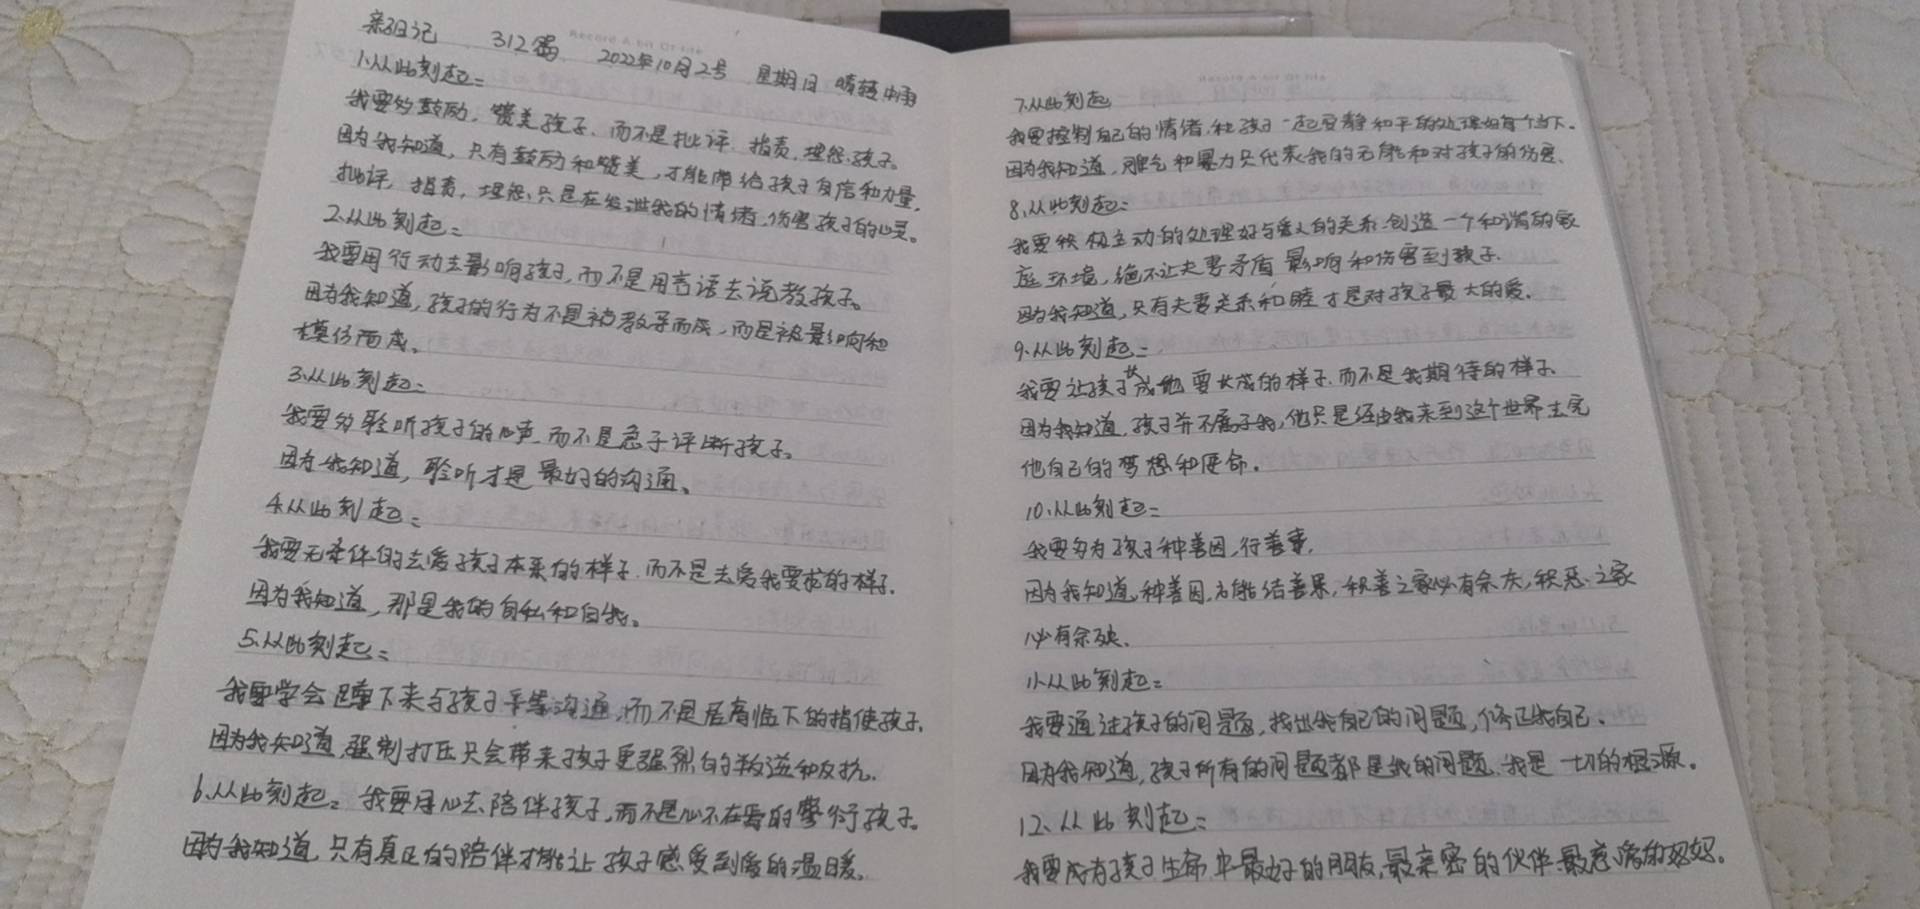 亲子日记 312篇 2022年10月2号 星期日 晴转中雨
1.从此刻起：
我要多鼓励，赞美孩子，而不是批评，指责，埋怨孩子。
因为我知道，只有鼓励和赞美，才能带给孩子自信和力量，
批评，指责，埋怨只是在发泄我的情绪，伤害孩子的心灵。
2.从此刻起：
我要用行动去影响孩子，而不是用言语去说教孩子。
因为我知道，孩子的行为不是被教导而成，而是被影响和
模仿而成。
3.从此刻起：
我要多聆听孩子的心声，而不是急于评断孩子。
因为我知道，聆听才是最好的沟通。
4.从此刻起：
我要无条件的去爱孩子本来的样子，而不是去爱我要求的样子。
因为我知道，那是我的自私和自我。
5.从此刻起：
我要学会蹲下来与孩子平等沟通，而不是居高临下的指使孩子，
因为我知道，强制打压只会带来孩子更强烈的叛逆和反抗。
6.从此刻起：我要用心去陪伴孩子，而不是心不在焉的敷衍孩子。
因为我知道，只有真正的陪伴才能让孩子感受到爱的温暖。
7.从此刻起
我要控制自己的情绪，和孩子一起安静和平的处理好每个当下。
因为我知道，脾气和暴力只代表我的无能和对孩子的伤害。
8.从此刻起：
我要积极主动的处理好与爱人的关系，创造一个和谐的家
庭环境，绝不让夫妻矛盾影响和伤害到孩子。
因为我知道，只有夫妻关系和睦才是对孩子最大的爱。
9.从此刻起：
我要让孩子长成他要长成的样子，而不是我期待的样子。
因为我知道，孩子并不属于我，他只是经由我来到这个世界去完
他自己的梦想和使命。
10.从此刻起：
我要多为孩子种善因，行善事，
因为我知道，种善因，方能结善果，积善之家必有余庆，积恶之家
必有余殃。
11.从此刻起：
我要通过孩子的问题，找出我自己的问题，修正我自己。
因为我知道，孩子所有的问题都是我的问题，我是一切的根源。
12.从此刻起：
我要成为孩子生命中最好的朋友，最亲密的伙伴，最慈爱的妈妈。